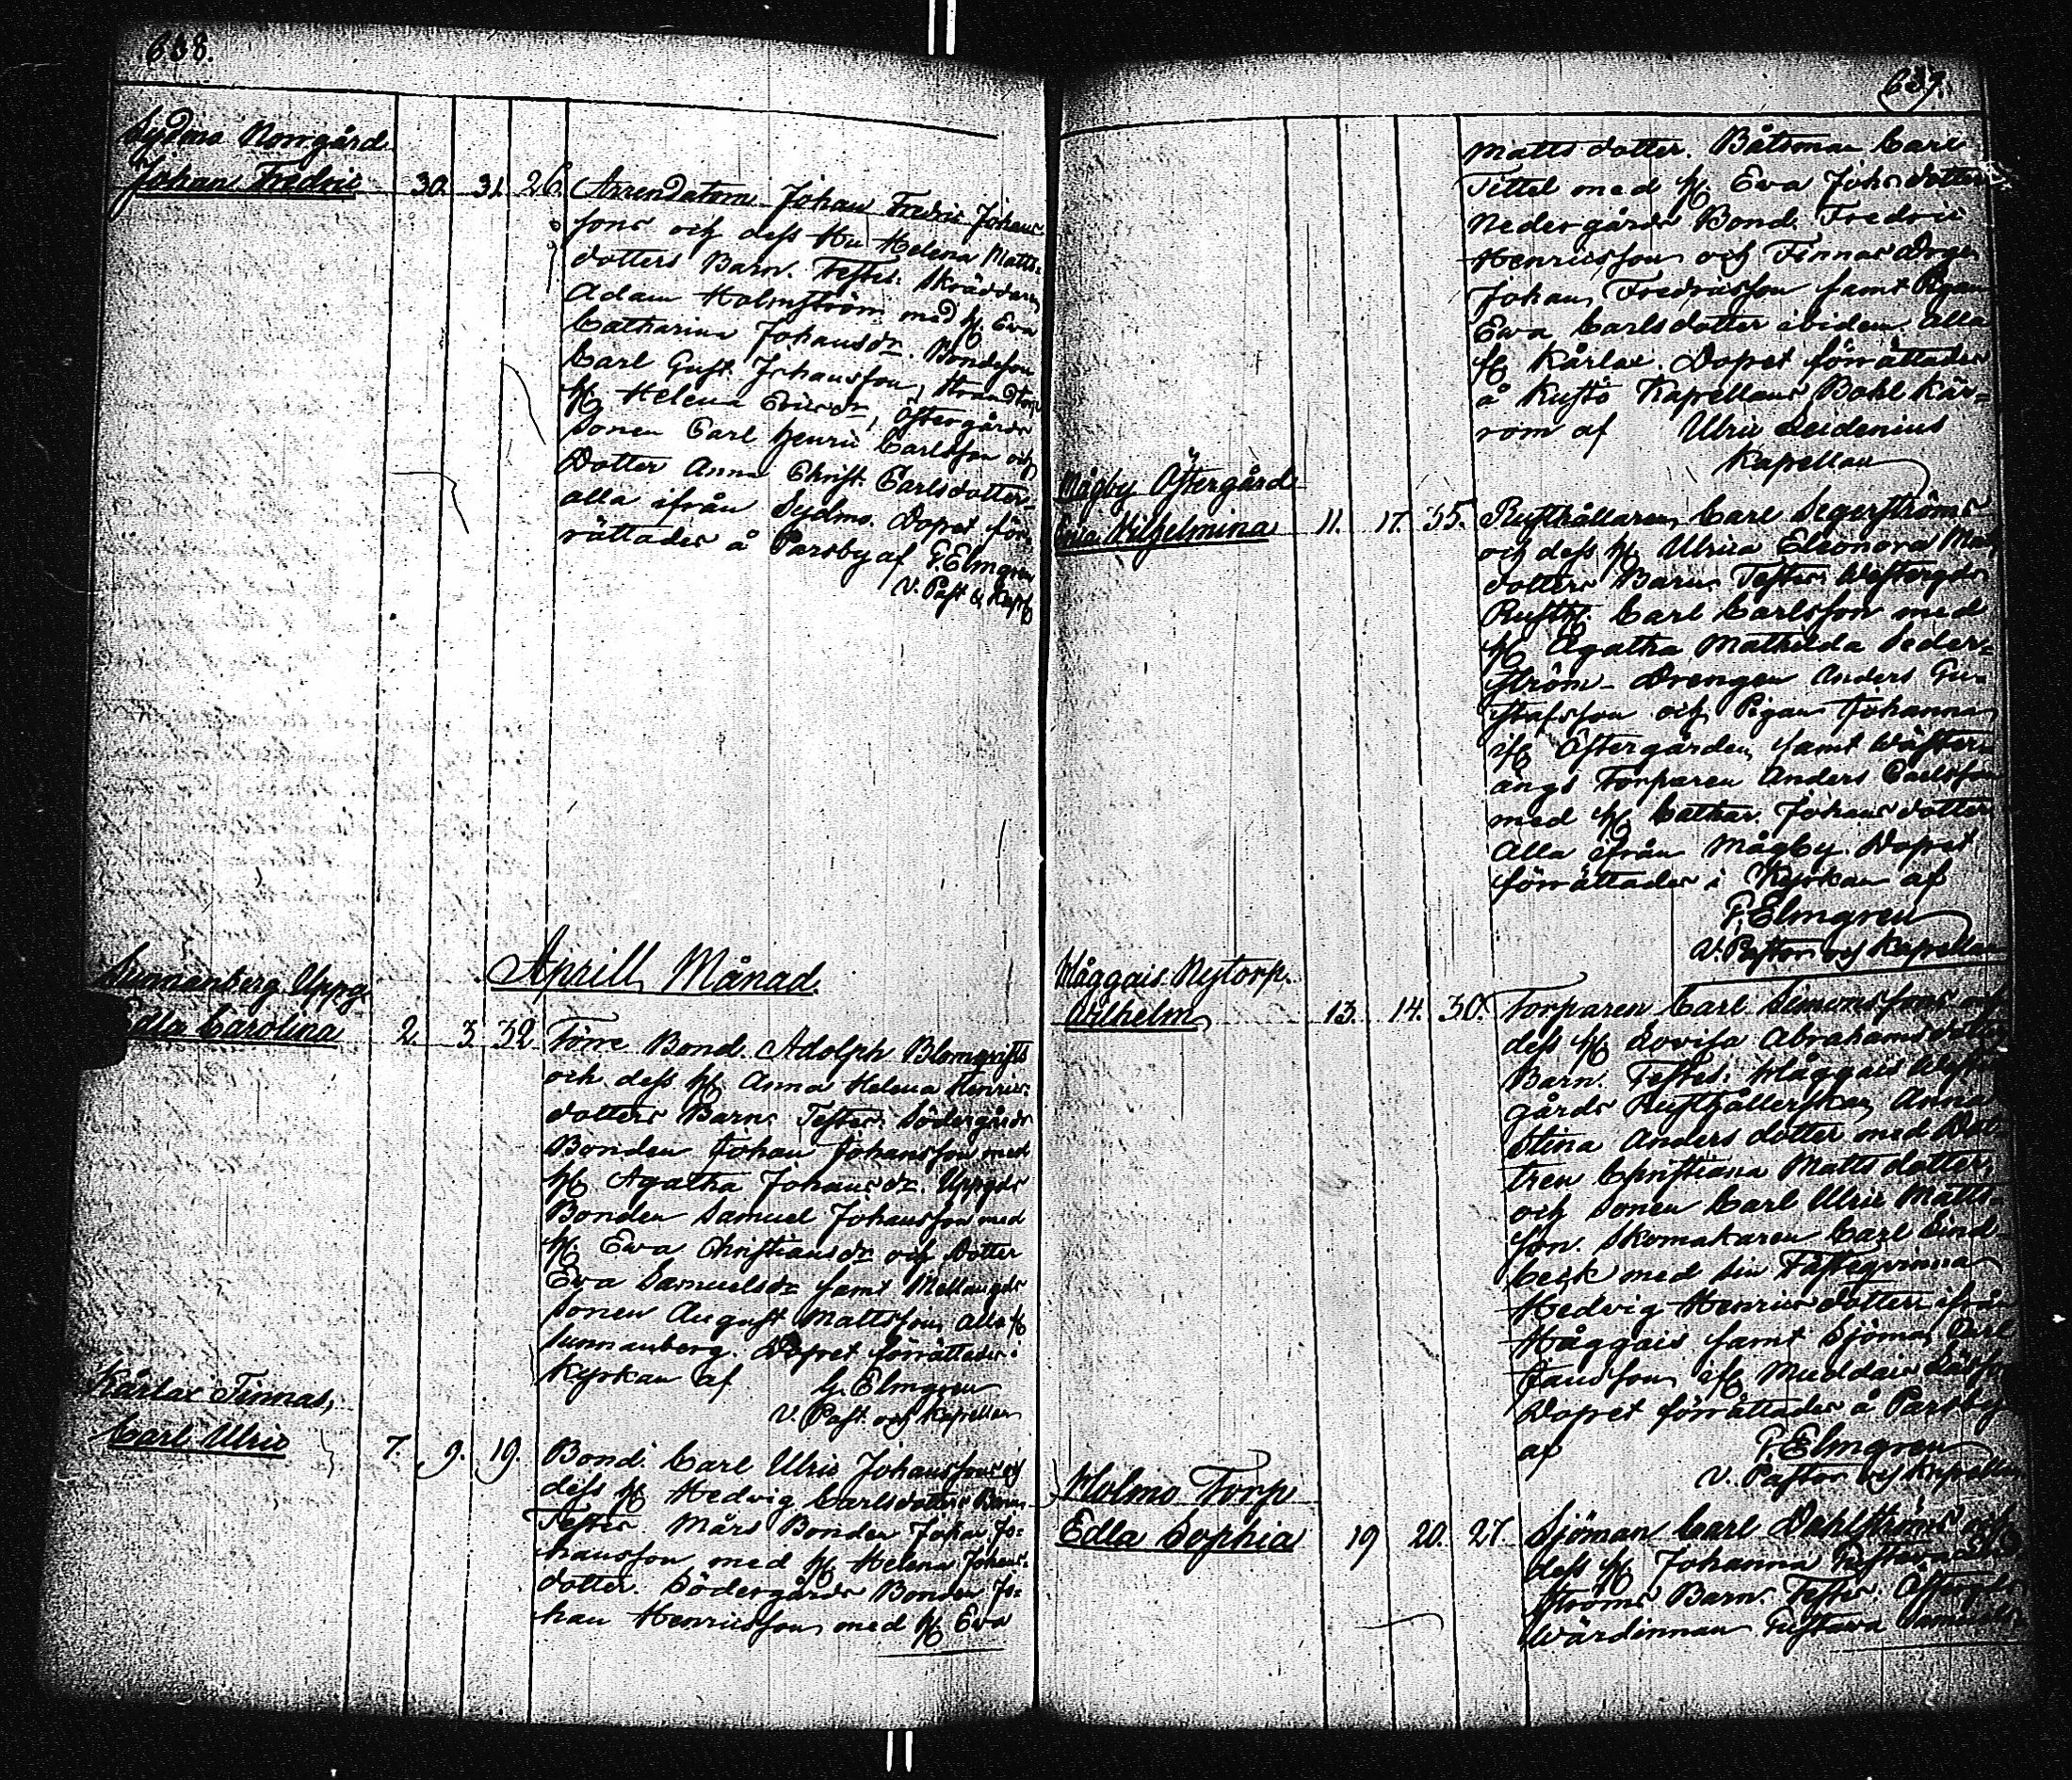 638.
Sydmo Norrgård
Johan Fredric 30. 31. 26. Arrendatorn Johan Fredric Johans-
sons och dess Hu Helena Matts-
dotters Barn. Testes: Skräddaren
Adam Holmström med H. Eva
Catharina Johansdr. Bondeson
Carl Gust. Johansson, Strandtorp
H. Helena Ericsdr, Östergårds
Sonen Carl Henric Carlsson och
Dotter Anna Christ. Carlsdotter
alla ifrån Sydmo. Dopet för-
rättades å Parsby af G. Elmgren
V. Past. & Kapl
Aprill Månad.
Sunnanberg Uppg.
Edla Carolina 2. 3. 32. Förre Bond. Adolph Blomqvists
och dess H. Anna Helena Henrics-
dotters Barn. Testes: Södergårds
Bonden Johan Johansson med
H. Agatha Johansdr. Uppgds
Bonden Samuel Johansson med
H. Ewa Christiansdr och Dotter
Eva Samuelsdr samt Mellangds
Sonen August Mattsson, Alla if.
Sunnanberg. Dopet förrättades i
Kyrkan af G. Elmgren
V. Past. och Kapellan
Kårlax Finnas,
Carl Ulric 7. 9. 19. Bond. Carl Ulric Johanssons och
dess H. Hedvig Carlsdotters Barn
Testes. Mårs Bonden Johan Jo-
hansson med H. Helena Johans-
dotter. Södergårds Bonden Jo-
han Henricsson med H. Eva
639.
Mattsdotter. Båtsman Carl
Tittel med H. Eva Johsdotter
Nedergårds Bond. Fredric
Henricsson och Finnas Drgn
Johan Fredricsson samt Pigan
Ewa Carlsdotter ibidem. Alla
if. Kårlax. Dopet förrättades
å Kustö Kapellans Bohl Kär-
rom af Ulric Seidenius
Kapellan
Mågby Östergård
Erica Wilhelmina 11. 17. 35. Rusthållaren Carl Segerströms
och dess H. Ulrica Eleonora Mats
dotters Barn. Testes: Westergds
Rusth. Carl Carlsson med
H. Agatha Mathilda Seder-
ström. Drengen Anders Gu-
stafsson och Pigan Johanna
if. Östergården, samt Wäster-
ängs Torparen Anders Carlsson
med H. Cathar. Johansdotter
Alla ifrån Mågby. Dopet
förrättades i Kyrkan af
G. Elmgren
V. Pastor och Kapellan
Håggais Nytorp.
Wilhelm 13. 14. 30. Torparen Carl Simonssons och
dess H. Lovisa Abrahamsdotters
Barn. Testes: Håggais Wester
gårds Rusthållerskan Anna
Stina Andersdotter med Dot-
tren Christiana Mattsdotter
och Sonen Carl Ulric Matts-
son. Skomakaren Carl Lind-
beck med sin Fästeqvinna
Hedvig Henricsdotter ifrån
Håggais samt Sjöman Carl
Jansson if. Muddais
Dopet förrättades å Parsby
af G. Elmgren
V. Pastor och Kapellan
Holmo Torp
Edla Sophia 19 20. 27. Sjöman Carl Dahlströms och
dess H. Johanna
ströms Barn. Testes: Östergds
Wärdinnan Gustava